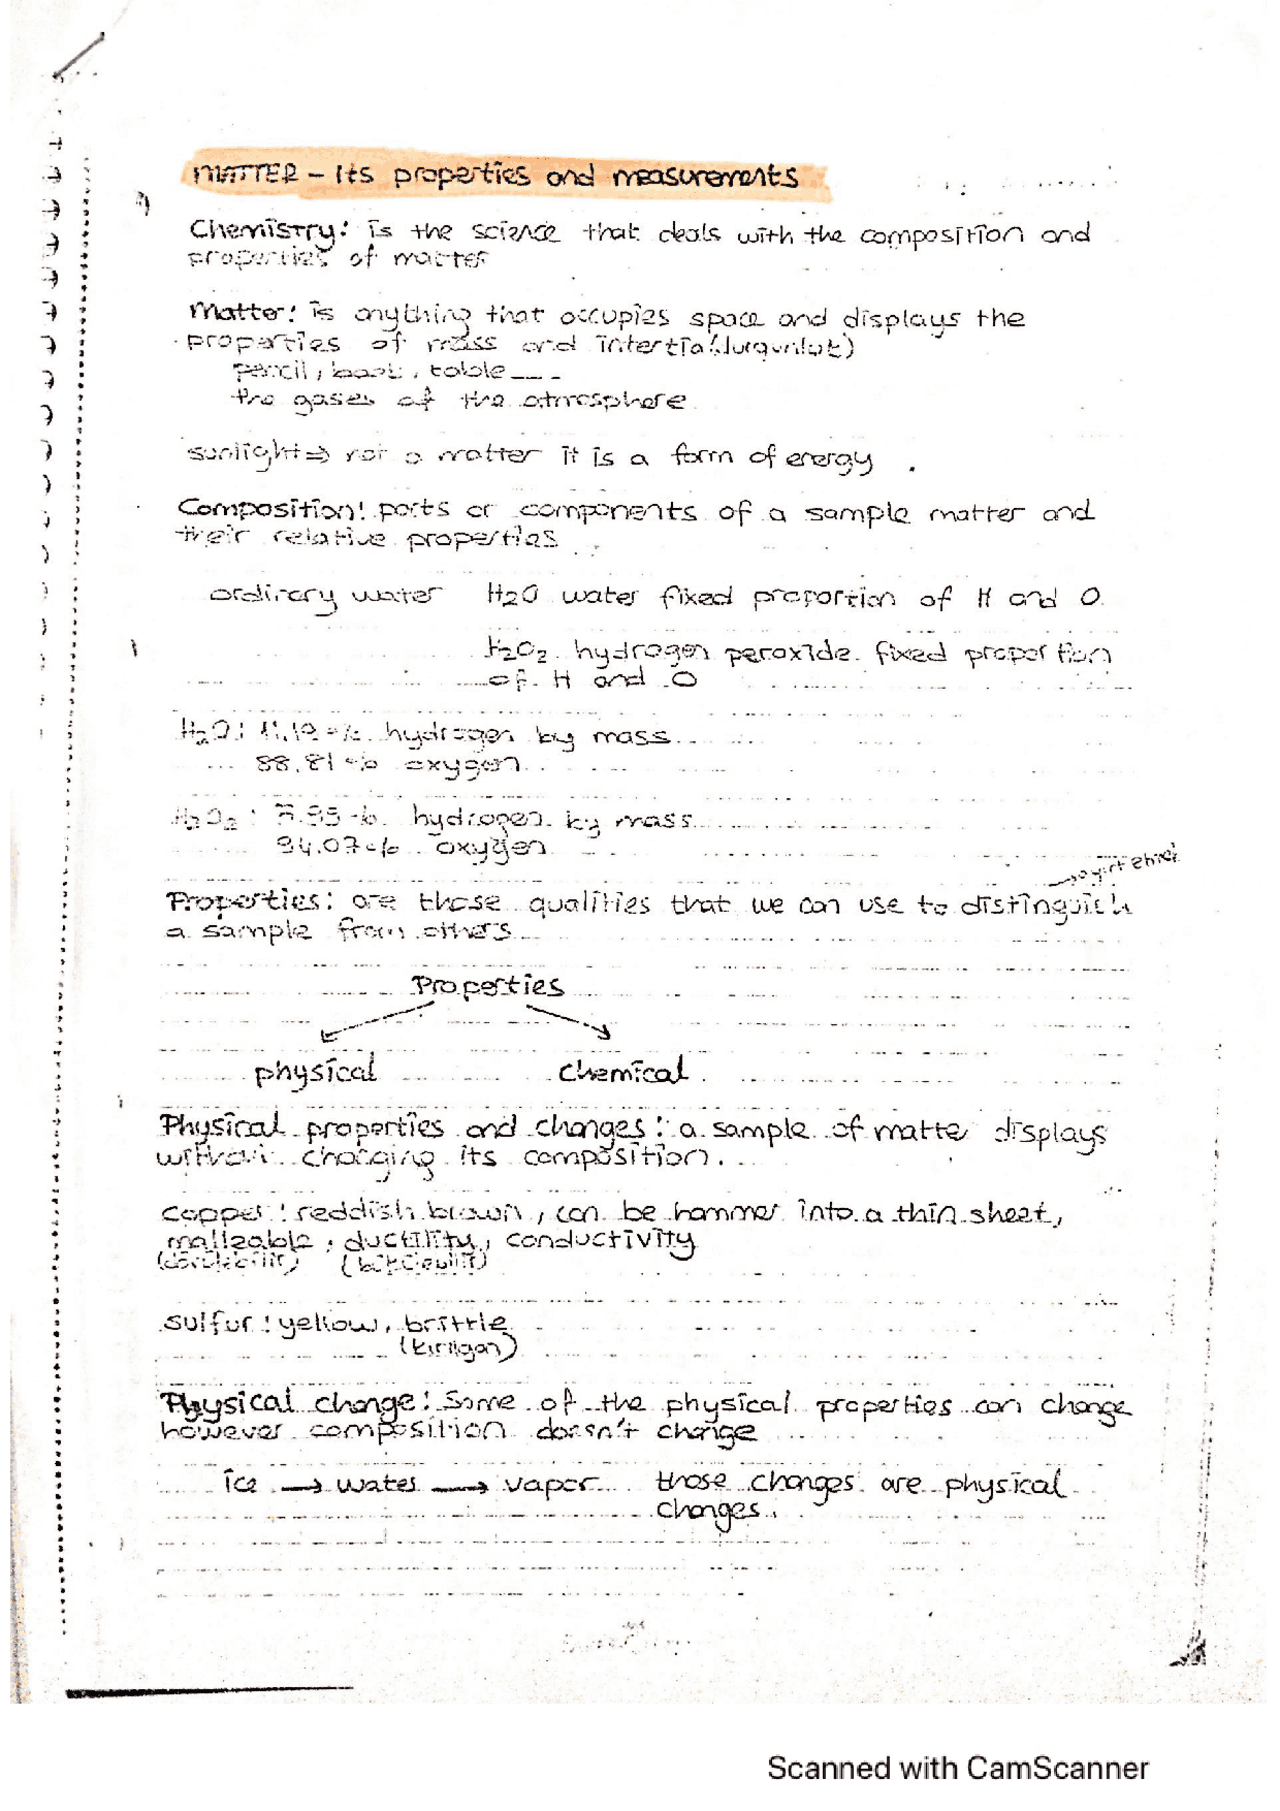 MATTER – Its properties and measurements
Chemistry: is the science that deals with the composition and
properties of matter
Matter: is anything that occupies space and displays the
properties of mass and intertia (durgunluk)
pencil, book, table ----
the gases of the atmosphere
sunlight ⇒ not a matter it is a form of energy .
Composition: parts or components of a sample matter and
their relative properties
ordinary water H2O water fixed proportion of H and O
H2O2 hydrogen peroxide fixed proportion
of H and O
H2O : 11.19 % hydrogen by mass
88.81 % oxygen
H2O2 : 5.93 % hydrogen by mass
94.07 % oxygen
→ ayırt etmek
Properties: are those qualities that we can use to distinguish
a sample from others
Properties
physical chemical
Physical properties and changes: a sample of matte displays
without changing its composition.
copper: reddish brown, can be hammer into a thin sheet,
malleable, ductility, conductivity
sulfur: yellow, brittle
(kırılgan)
Physical change: Some of the physical properties can change
however composition doesn't change
ice → water → vapor those changes are physical
changes.
Scanned with CamScanner